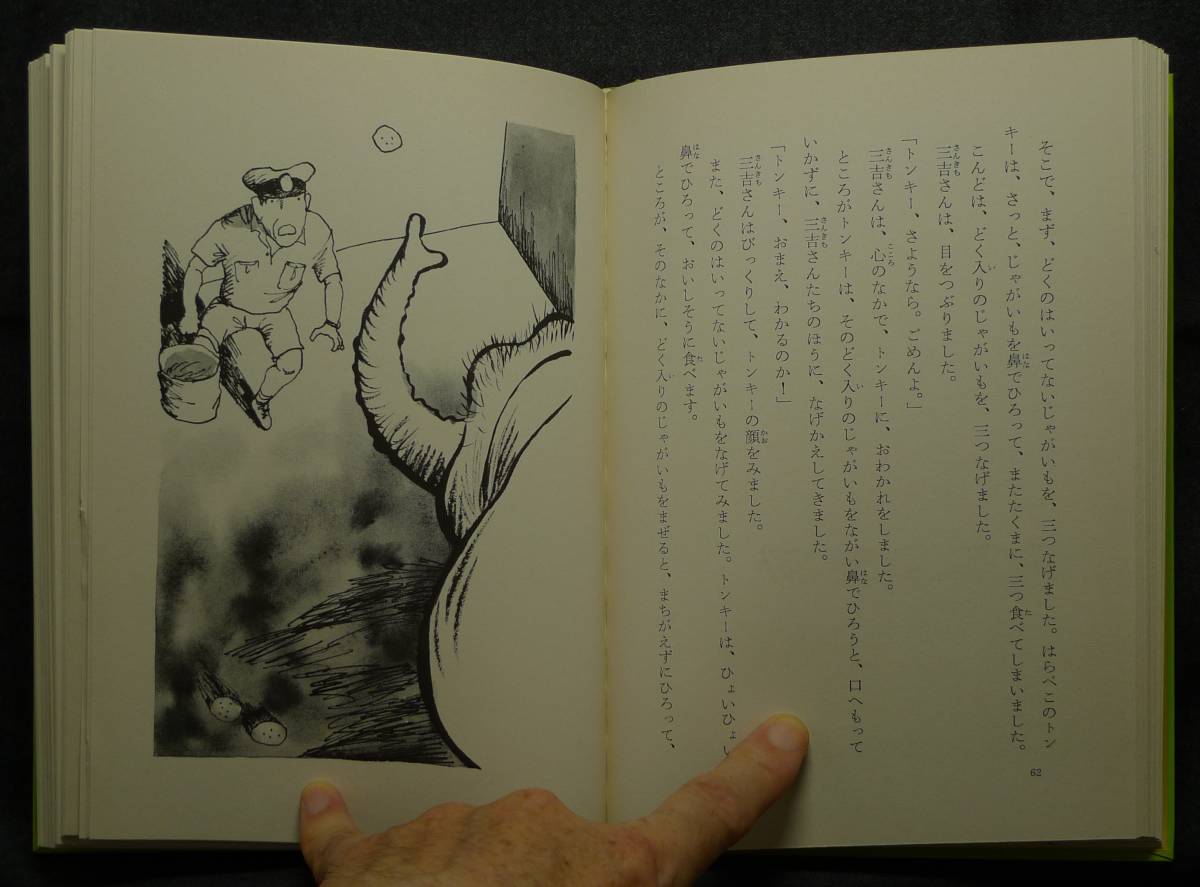 そこで、まず、どくのはいってないじゃがいもを、三つなげました。はらぺこのトン
キーは、さっと、じゃがいもを鼻でひろって、またたくまに、三つ食べてしまいました。
こんどは、どく入りのじゃがいもを、三つなげました。
三吉さんは、目をつぶりました。
「トンキー、さようなら。ごめんよ。」
三吉さんは、心のなかで、トンキーに、おわかれをしました。
ところがトンキーは、そのどく入りのじゃがいもをながい鼻でひろうと、口へもって
いかずに、三吉さんたちのほうに、なげかえしてきました。
「トンキー、おまえ、わかるのか！」
三吉さんはびっくりして、トンキーの顔をみました。
また、どくのはいってないじゃがいもをなげてみました。トンキーは、ひょいひょい
鼻でひろって、おいしそうに食べます。
ところが、そのなかに、どく入りのじゃがいもをまぜると、まちがえずにひろって、
62